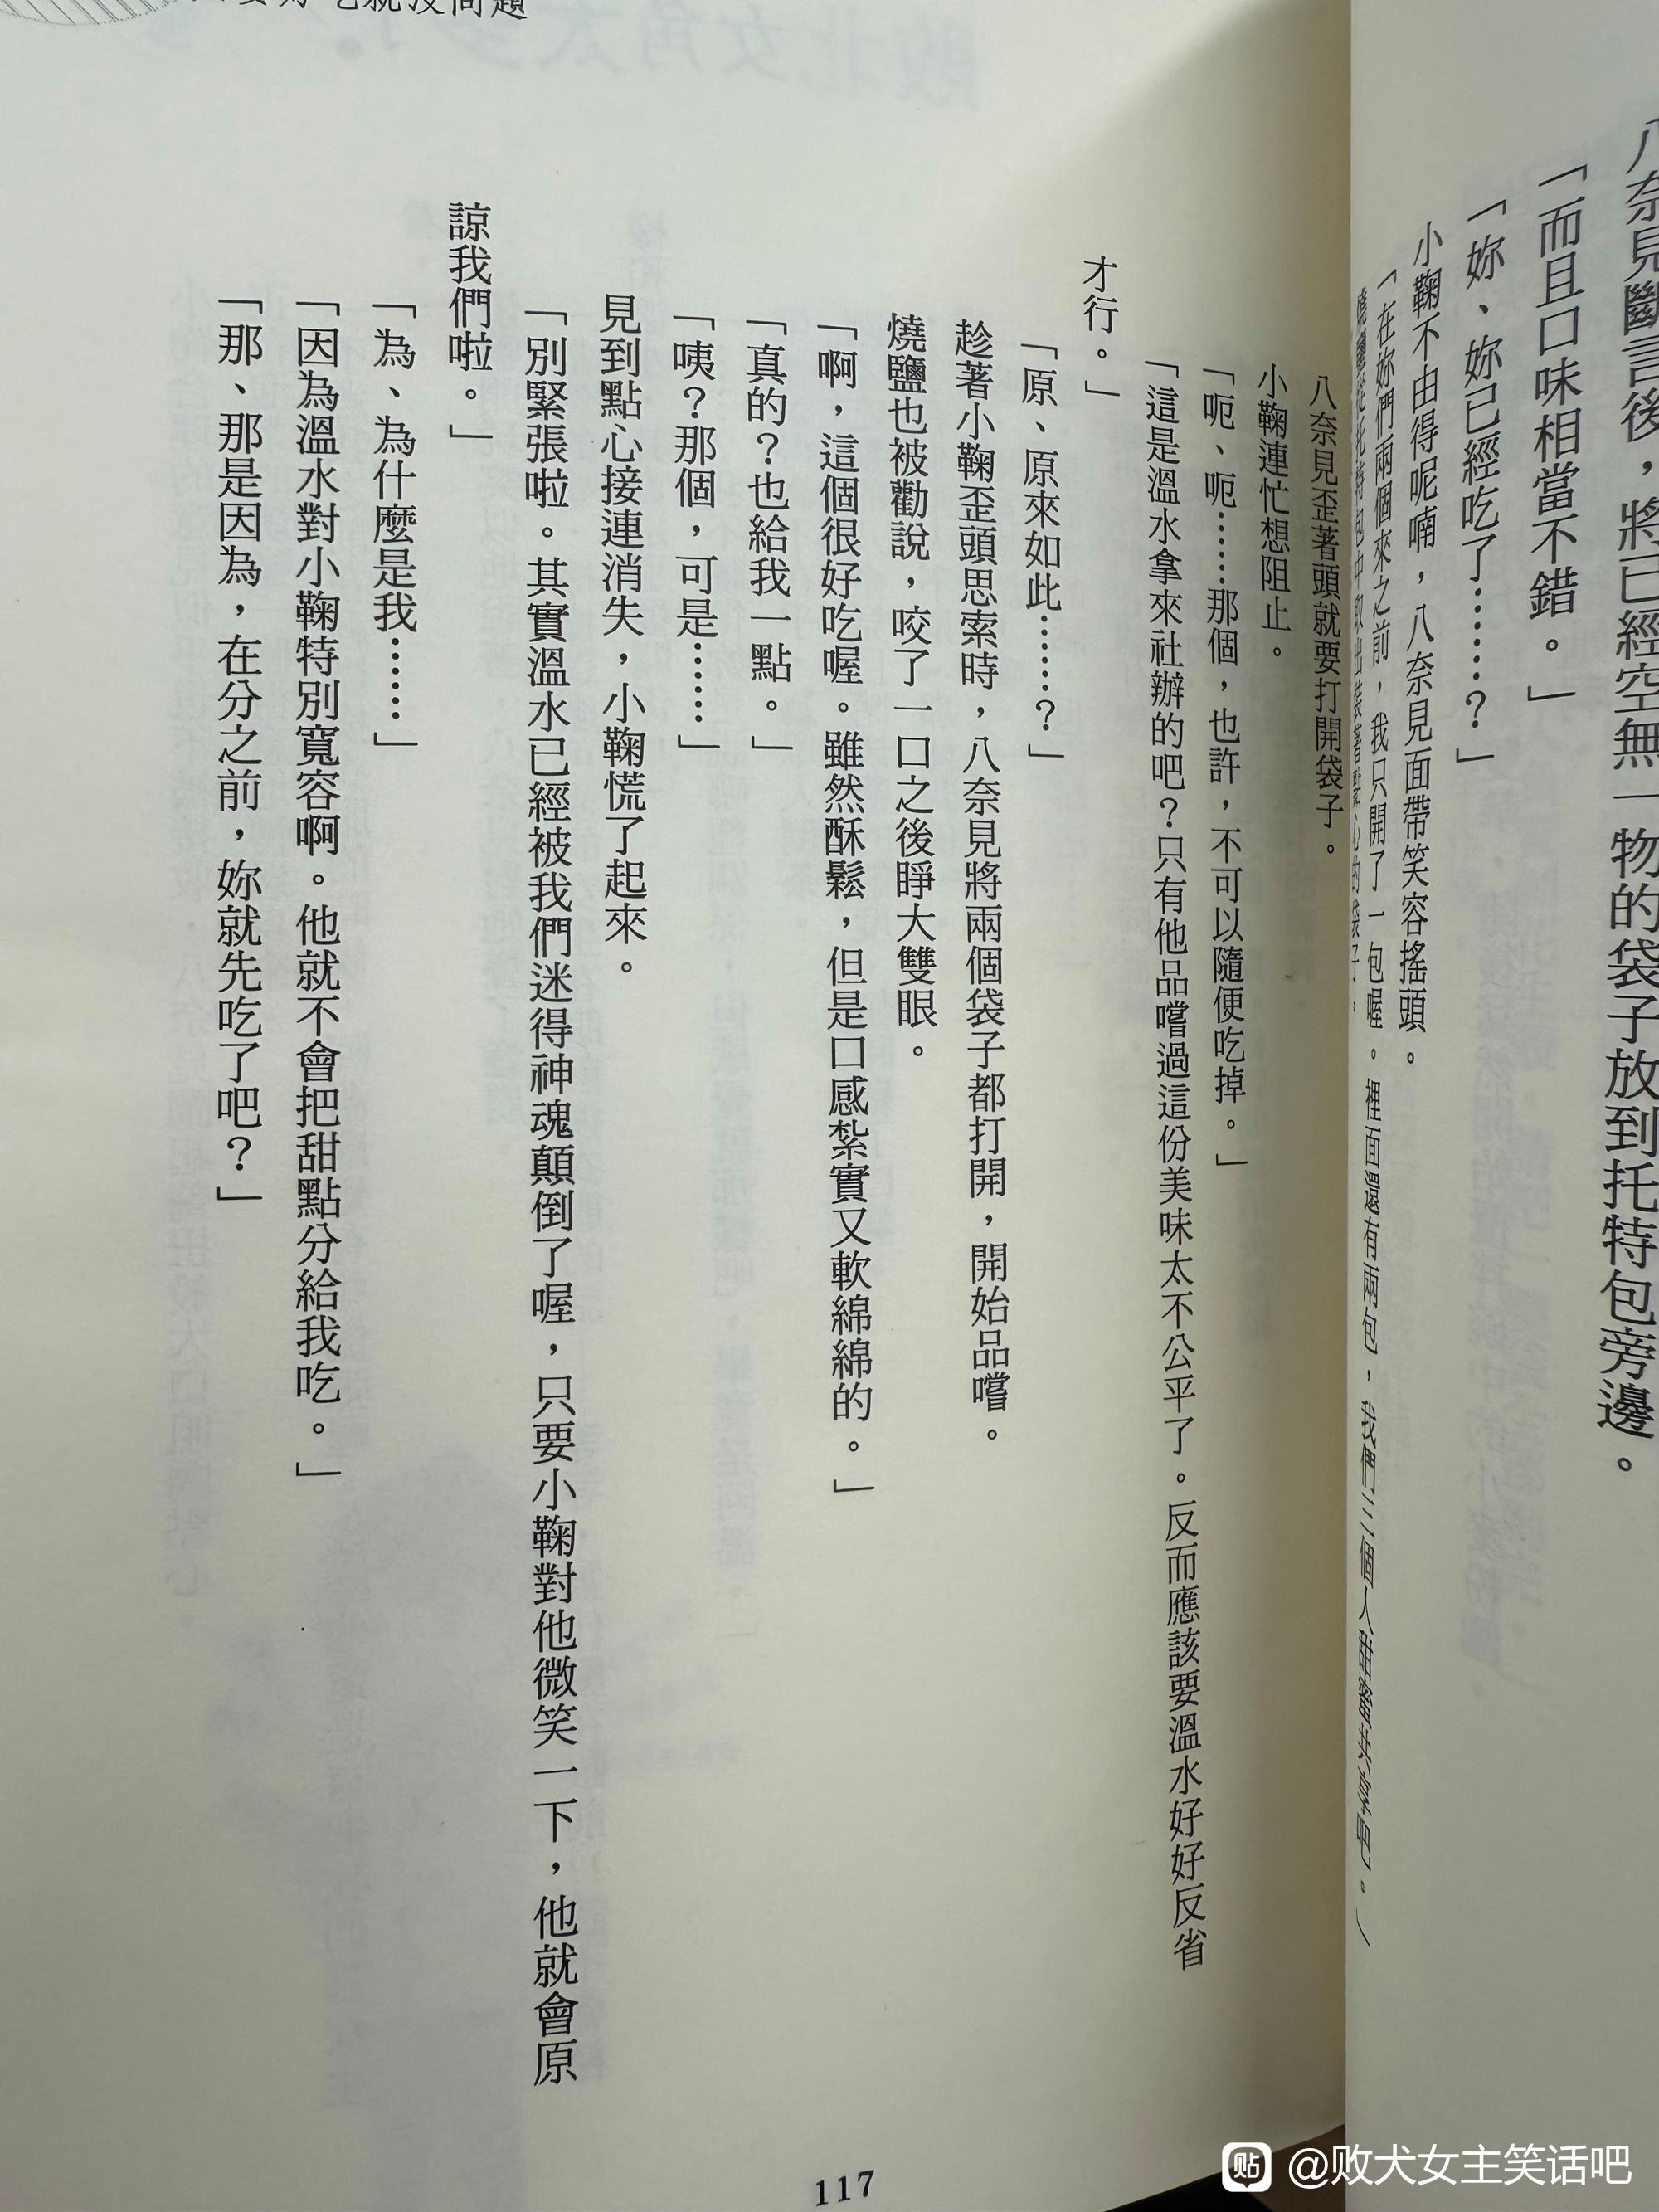 八奈見斷言後，將已經空無一物的袋子放到托特包旁邊。
「而且口味相當不錯。」
「妳、妳已經吃了……？」
小鞠不由得呢喃，八奈見面帶笑容搖頭。
「在妳們兩個來之前，我只開了一包喔。裡面還有兩包，我們三個人甜蜜共享吧。」
燒鹽從托特包中取出裝著點心的袋子。
八奈見歪著頭就要打開袋子。
小鞠連忙想阻止。
「呃、呃……那個，也許，不可以隨便吃掉。」
「這是溫水拿來社辦的吧？只有他品嚐過這份美味太不公平了。反而應該要溫水好好反省
才行。」
「原、原來如此……？」
趁著小鞠歪頭思索時，八奈見將兩個袋子都打開，開始品嚐。
燒鹽也被勸說，咬了一口之後睜大雙眼。
「啊，這個很好吃喔。雖然酥鬆，但是口感紮實又軟綿綿的。」
「真的？也給我一點。」
「咦？那個，可是……」
見到點心接連消失，小鞠慌了起來。
「別緊張啦。其實溫水已經被我們迷得神魂顛倒了喔，只要小鞠對他微笑一下，他就會原
諒我們啦。」
「為、為什麼是我……」
「因為溫水對小鞠特別寬容啊。他就不會把甜點分給我吃。」
「那、那是因為，在分之前，妳就先吃了吧？」
117
貼 @败犬女主笑话吧